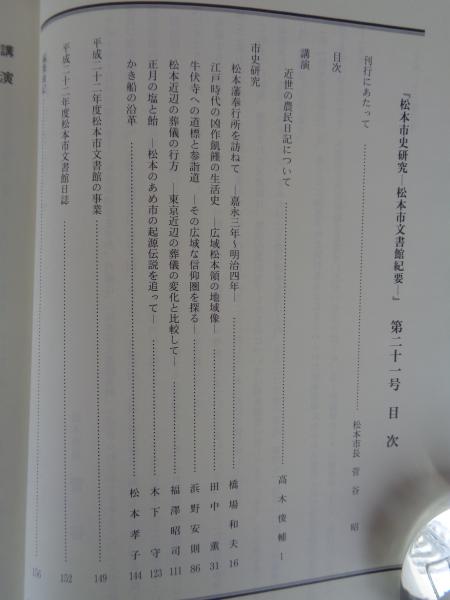 『松本市史研究―松本市文書館紀要―』 第二十一号 目次
刊行にあたって 松本市長 菅谷 昭
目次
講演
近世の農民日記について 高木俊輔 1
市史研究
松本藩奉行所を訪ねて ―嘉永三年~明治四年― 橋場和夫 16
江戸時代の凶作飢饉の生活史 ―広域松本領の地域像― 田中薫 31
牛伏寺への道標と参詣道 ―その広域な信仰圏を探る― 浜野安則 86
松本近辺の葬儀の行方 ―東京近辺の葬儀の変化と比較して― 福澤昭司 111
正月の塩と飴 ―松本のあめ市の起源伝説を追って― 木下守 123
かき船の沿革 松本孝子 144
平成二十二年度松本市文書館の事業 149
平成二十二年度松本市文書館日誌 152
156
講演